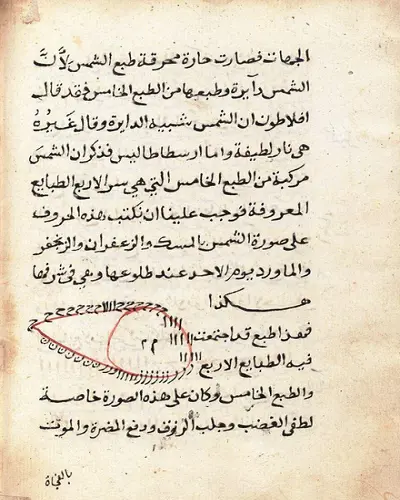 الجهات فصارت حارة محرقة طبع الشمس لأنّ
الشمس دآيرة وطبعها من الطبع الخامس فقد قال
افلاطون ان الشمس شبيه الدايرة وقال غَيْرُهُ
هى نار لطيفة واما ارسطاطاليس فذكر ان الشمسَ
مركبة من الطبع الخامس التي هي سر الاربع الطبايع
المعروفة فوجب علينا ان نكتب هذه الحروف
على صورة الشمس بالمسك والزعفران والزنجفر
والماورد يوم الاحد عند طلوعها وهي في شرفها
هكذا
فهذا طبع قد اجتمعت
فيه الطبايع الاربع
والطبع الخامس وكان على هذه الصورة خاصة
لطفى الغضب وجلب الرزق ودفع المضرة والموت
بالفجاة